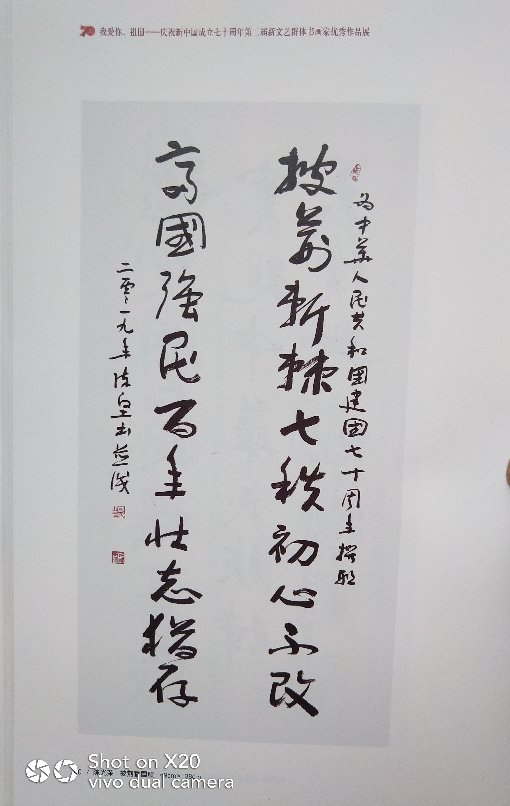 70 我爱你，祖国——庆祝新中国成立七十周年第二届新文艺群体书画家优秀作品展
為中華人民共和國建國七十周年撰聯
披荊斬棘七秩初心不改
富國強民百年壯志猶存
二零一九年
Shot on X20
vivo dual camera